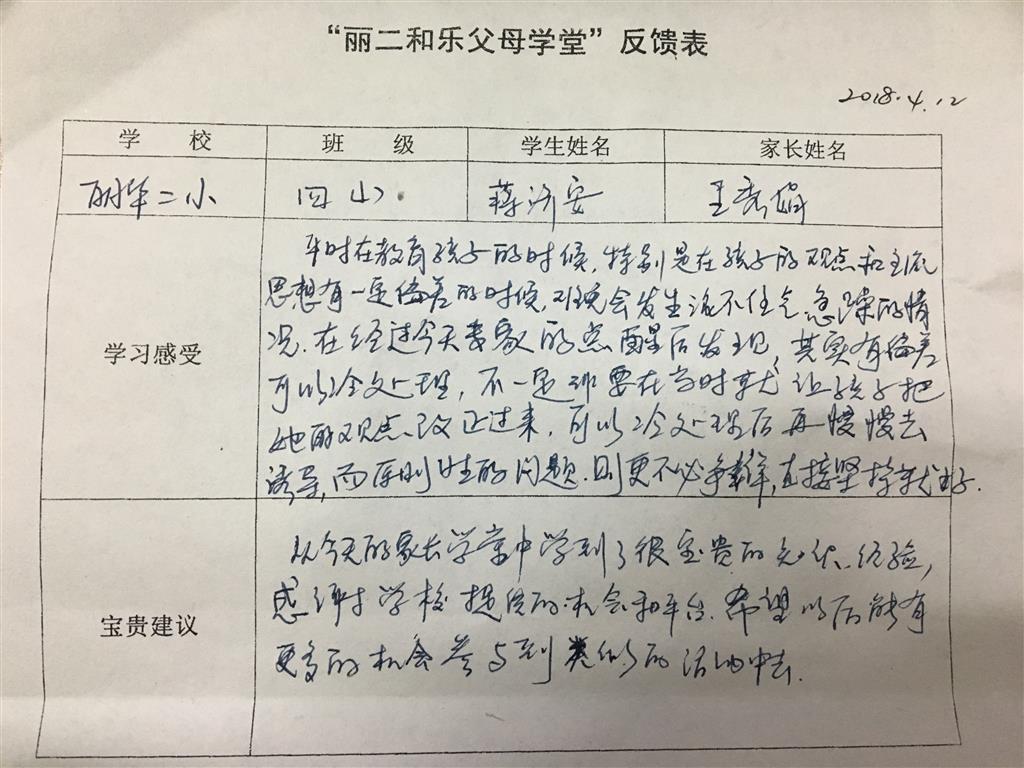 “丽二和乐父母学堂”反馈表
2018.4.12
学 校 班 级 学生姓名 家长姓名
丽华二小 四 蒋济安 王
平时在教育孩子的时候,特别是在孩子的观点和主流
思想有一定偏差的时候,难免会发生沉不住气急躁的情
学习感受
况.在经过今天专家的点醒后发现,其实有偏差
可以冷处理,不一定非要在当时就让孩子把
她的观点改正过来,可以冷处理后再慢慢去
诱导,而原则性的问题.则更不必争辩,直接坚持就好.
从今天的家长学堂中学到了很宝贵的经验,
宝贵建议
感谢学校提供的机会和平台.希望以后能有
更多的机会参与到类似的活动中去.